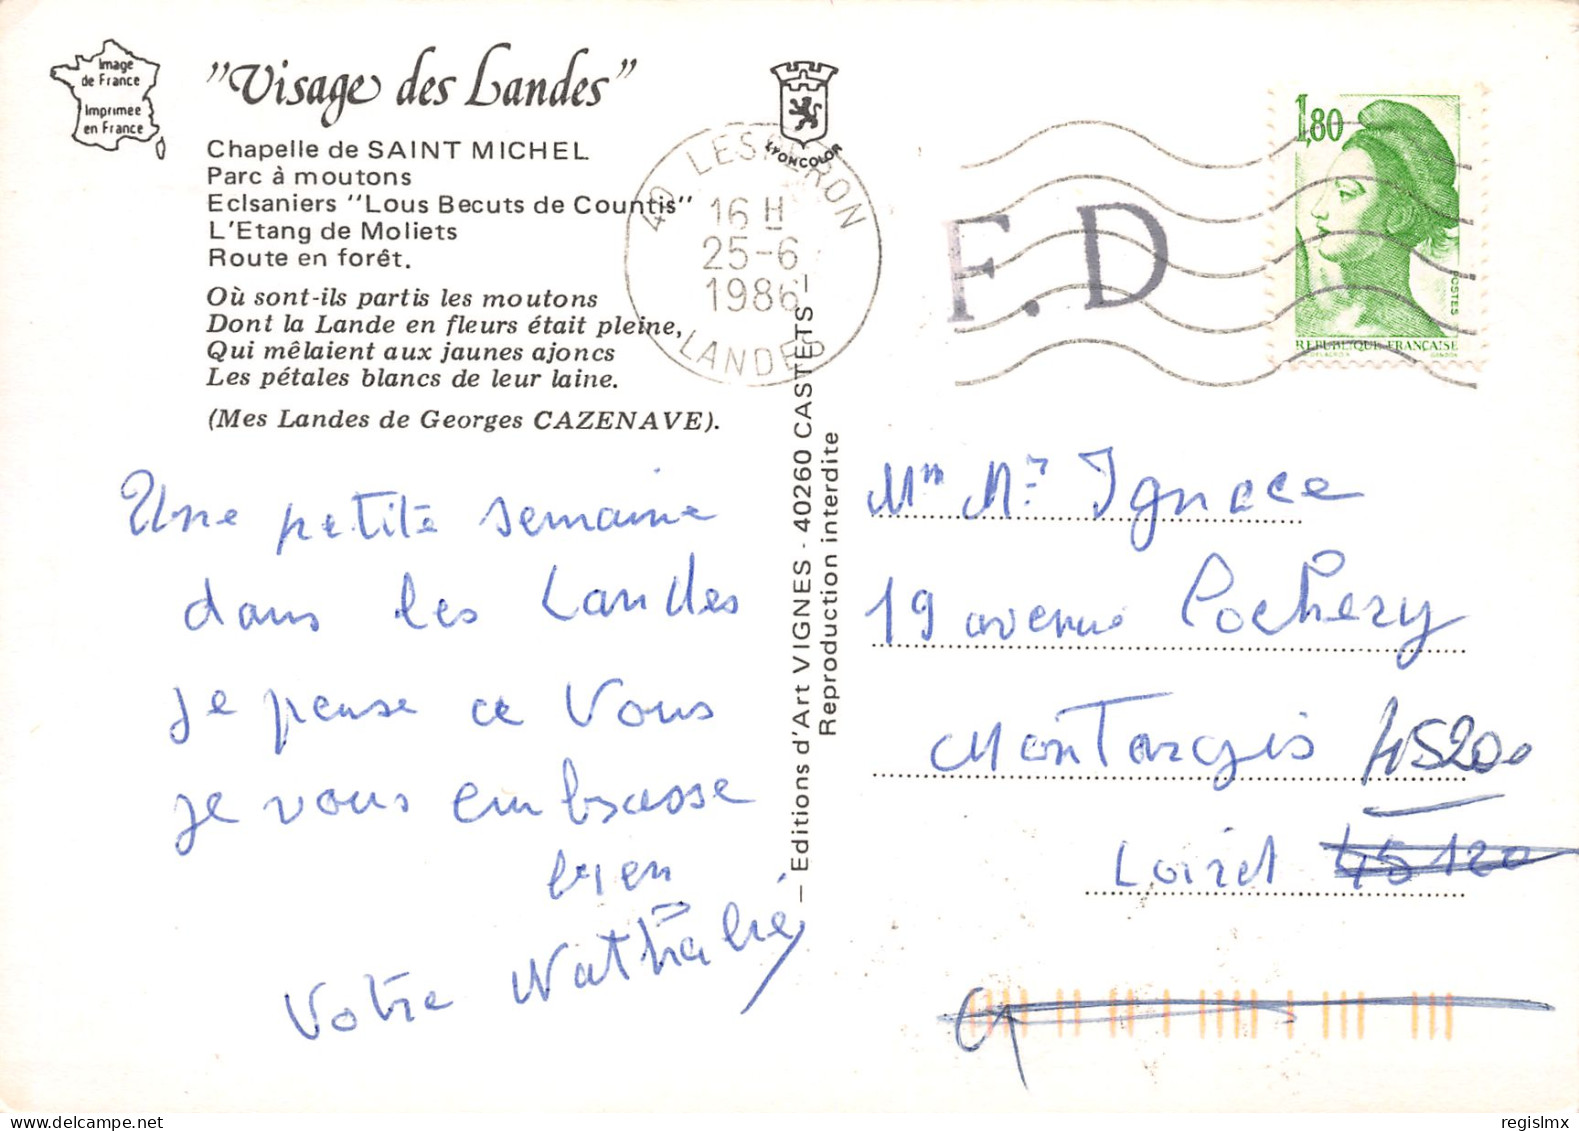 Image
de France
Imprimée
en France
"Visage des Landes"
Chapelle de SAINT MICHEL
Parc à moutons
Eclsaniers "Lous Becuts de Countis"
L'Etang de Moliets
Route en forêt.
Où sont-ils partis les moutons
Dont la Lande en fleurs était pleine,
Qui mêlaient aux jaunes ajoncs
Les pétales blancs de leur laine.
(Mes Landes de Georges CAZENAVE).
Une petite semaine
dans les Landes
je pense ce vous
je vous embrasse
bien
Votre Nathalie
LYONCOLOR
40 LESPERON
16 H
25-6
1986
LANDES
F.D
1,80
POSTES
REPUBLIQUE FRANÇAISE
DELACROIX GANDON
— Editions d'Art VIGNES - 40260 CASTETS —
Reproduction interdite
Mm Mr Ignace
19 avenue Cochery
Montargis 45200
Loiret 45120
regislmx